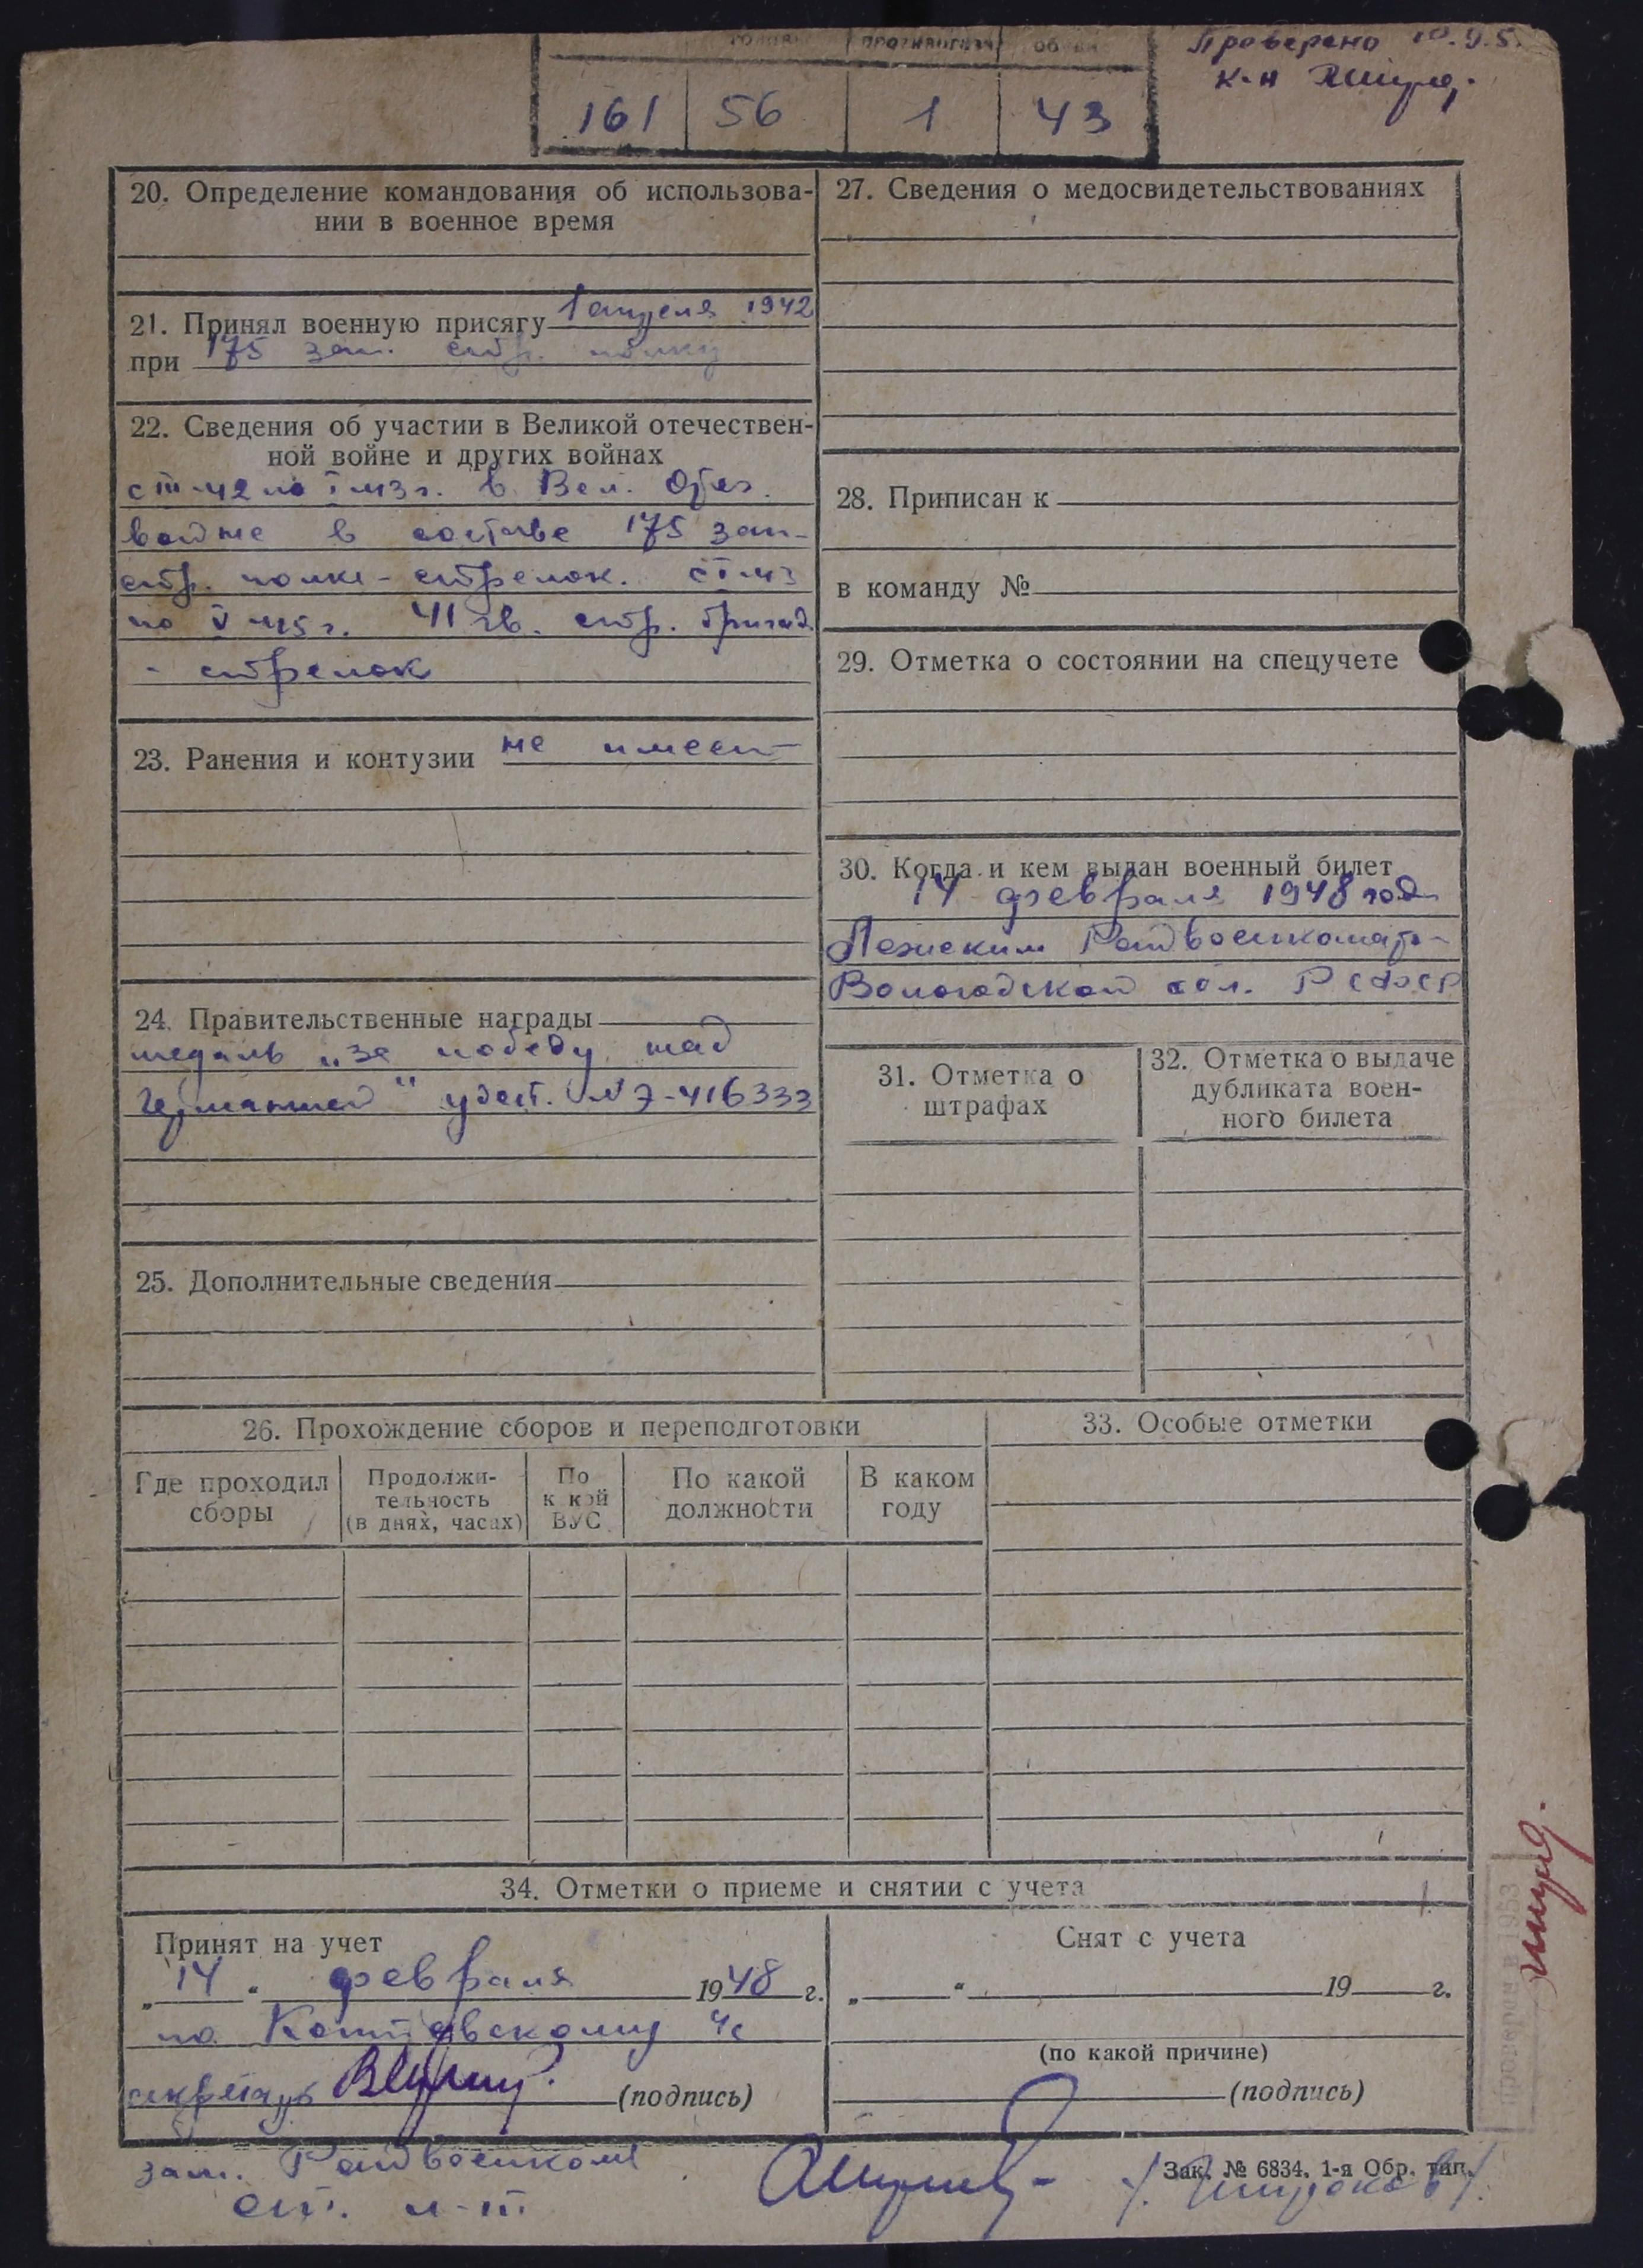 противогаза
Проверено
к-н
161 56 1 43
20. Определение командования об использова-
нии в военное время
21. Принял военную присягу 1 апреля 1942
при 175 зап. стр. полку
22. Сведения об участии в Великой отечествен-
ной войне и других войнах
с III-42 по I-43 г. в Вел. Отеч.
войне в составе 175 зап-
стр. полка - стрелок. с I-43
по V-45 г. 41 гв. стр. бригад.
- стрелок
23. Ранения и контузии не имеет
24. Правительственные награды
медаль „за победу над
Германией" удост. № Э-416333
25. Дополнительные сведения
27. Сведения о медосвидетельствованиях
28. Приписан к
в команду №
29. Отметка о состоянии на спецучете
30. Когда и кем выдан военный билет
14 февраля 1948 год
Лежским Райвоенкомато-
Вологодской обл. РСФСР
31. Отметка о
штрафах
32. Отметка о выдаче
дубликата воен-
ного билета
26. Прохождение сборов и переподготовки
Где проходил
сборы
Продолжи-
тельность
(в днях, часах)
По
к кой
ВУС
По какой
должности
В каком
году
33. Особые отметки
34. Отметки о приеме и снятии с учета
Принят на учет
„14" февраля 1948 г.
по
секретарь (подпись)
Снят с учета
„ " 19 г.
(по какой причине)
(подпись)
зам. Райвоенкома
ст. л-т /Широков/
Зак. № 6834. 1-я Обр. тип.
проверен в 1953